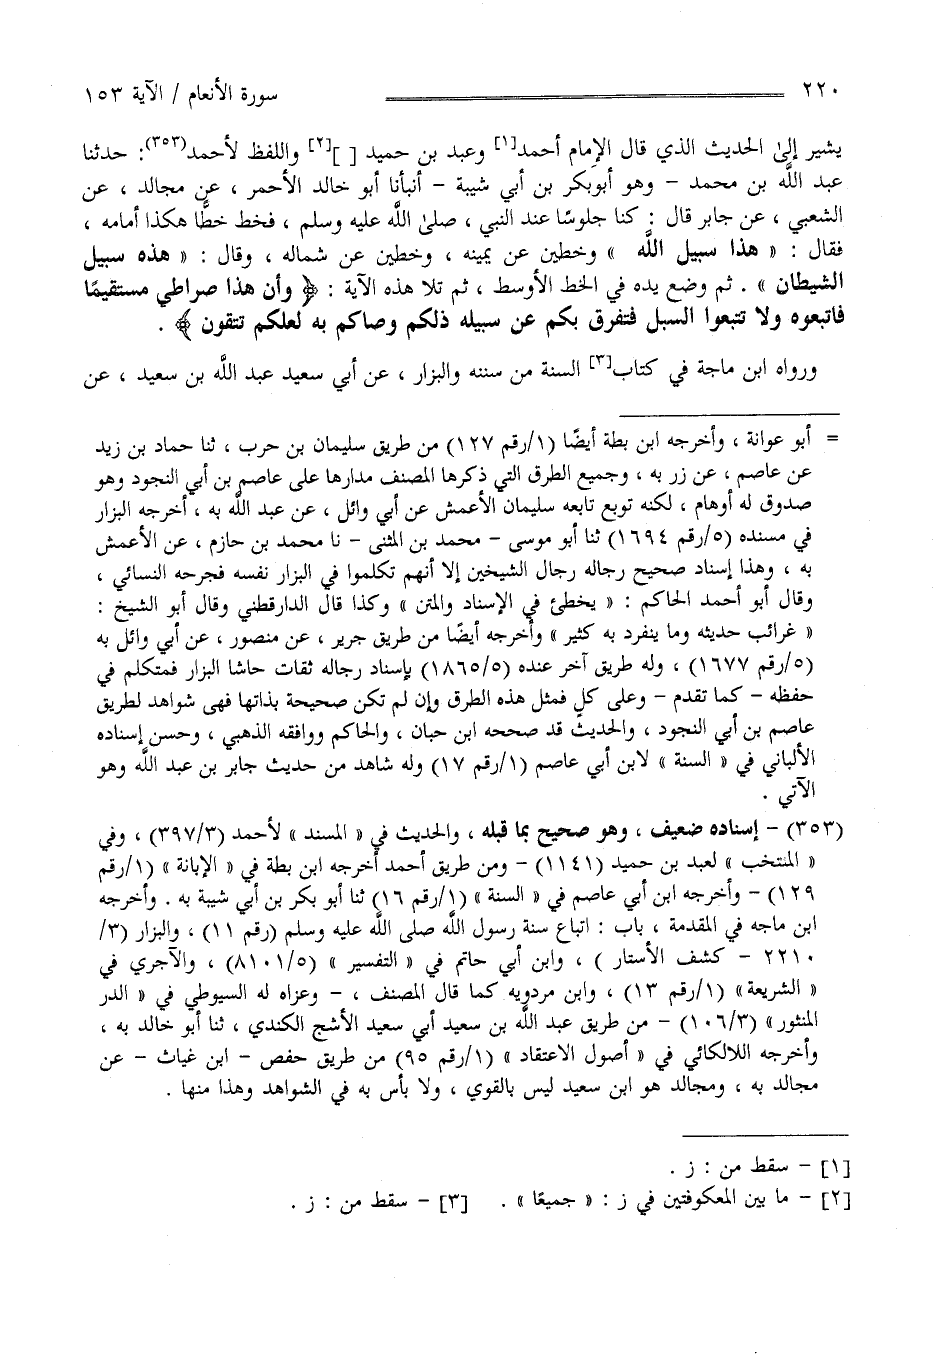 ٢٢٠ سورة الأنعام / الآية ١٥٣
يشير إلىٰ الحديث الذي قال الإمام أحمد[١] وعبد بن حميد [ ][٢] واللفظ لأحمد(٣٥٣): حدثنا
عبد اللَّه بن محمد - وهو أبوبكر بن أبي شيبة - أنبأنا أبو خالد الأحمر ، عن مجالد ، عن
الشعبي ، عن جابر قال : كنا جلوسًا عند النبي ، صلىٰ اللَّه عليه وسلم ، فخط خطًّا هكذا أمامه ،
فقال : « هذا سبيل اللَّه » وخطين عن يمينه ، وخطين عن شماله ، وقال : « هذه سبيل
الشيطان » . ثم وضع يده في الخط الأوسط ، ثم تلا هذه الآية : ﴿ وأن هذا صراطي مستقيمًا
فاتبعوه ولا تتبعوا السبل فتفرق بكم عن سبيله ذلكم وصاكم به لعلكم تتقون ﴾ .
ورواه ابن ماجة في كتاب[٣] السنة من سننه والبزار ، عن أبي سعيد عبد اللَّه بن سعيد ، عن
= أبو عوانة ، وأخرجه ابن بطة أيضًا (١/رقم ١٢٧) من طريق سليمان بن حرب ، ثنا حماد بن زيد
عن عاصم ، عن زر به ، وجميع الطرق التي ذكرها المصنف مدارها على عاصم بن أبي النجود وهو
صدوق له أوهام ، لكنه توبع تابعه سليمان الأعمش عن أبي وائل ، عن عبد اللَّه به ، أخرجه البزار
في مسنده (٥/رقم ١٦٩٤) ثنا أبو موسى - محمد بن المثنى - نا محمد بن حازم ، عن الأعمش
به ، وهذا إسناد صحيح رجاله رجال الشيخين إلا أنهم تكلموا في البزار نفسه فجرحه النسائي ،
وقال أبو أحمد الحاكم : « يخطئ في الإسناد والمتن » وكذا قال الدارقطني وقال أبو الشيخ :
« غرائب حديثه وما ينفرد به كثير » وأخرجه أيضًا من طريق جرير ، عن منصور ، عن أبي وائل به
(٥/رقم ١٦٧٧) ، وله طريق آخر عنده (١٨٦٥/٥) بإسناد رجاله ثقات حاشا البزار فمتكلم في
حفظه - كما تقدم - وعلى كلٍ فمثل هذه الطرق وإن لم تكن صحيحة بذاتها فهى شواهد لطريق
عاصم بن أبي النجود ، والحديث قد صححه ابن حبان ، والحاكم ووافقه الذهبي ، وحسن إسناده
الألباني في « السنة » لابن أبي عاصم (١/رقم ١٧) وله شاهد من حديث جابر بن عبد اللَّه وهو
الآتي .
(٣٥٣) - إسناده ضعيف ، وهو صحيح بما قبله ، والحديث في « المسند » لأحمد (٣٩٧/٣) ، وفي
« المنتخب » لعبد بن حميد (١١٤١) - ومن طريق أحمد أخرجه ابن بطة في « الإبانة » (١/رقم
١٢٩) - وأخرجه ابن أبي عاصم في « السنة » (١/رقم ١٦) ثنا أبو بكر بن أبي شيبة به . وأخرجه
ابن ماجه في المقدمة ، باب : اتباع سنة رسول اللَّه صلى اللَّه عليه وسلم (رقم ١١) ، والبزار (٣/
٢٢١٠ - كشف الأستار ) ، وابن أبي حاتم في « التفسير » (٨١٠١/٥) ، والآجري في
« الشريعة» (١/رقم ١٣) ، وابن مردويه كما قال المصنف ، - وعزاه له السيوطي في « الدر
المنثور» (١٠٦/٣) - من طريق عبد اللَّه بن سعيد أبي سعيد الأشج الكندي ، ثنا أبو خالد به ،
وأخرجه اللالكائي في « أصول الاعتقاد » (١/رقم ٩٥) من طريق حفص - ابن غياث - عن
مجالد به ، ومجالد هو ابن سعيد ليس بالقوي ، ولا بأس به في الشواهد وهذا منها .
[١] - سقط من : ز .
[٢] - ما بين المعكوفتين في ز : « جميعًا » . [٣] - سقط من : ز .